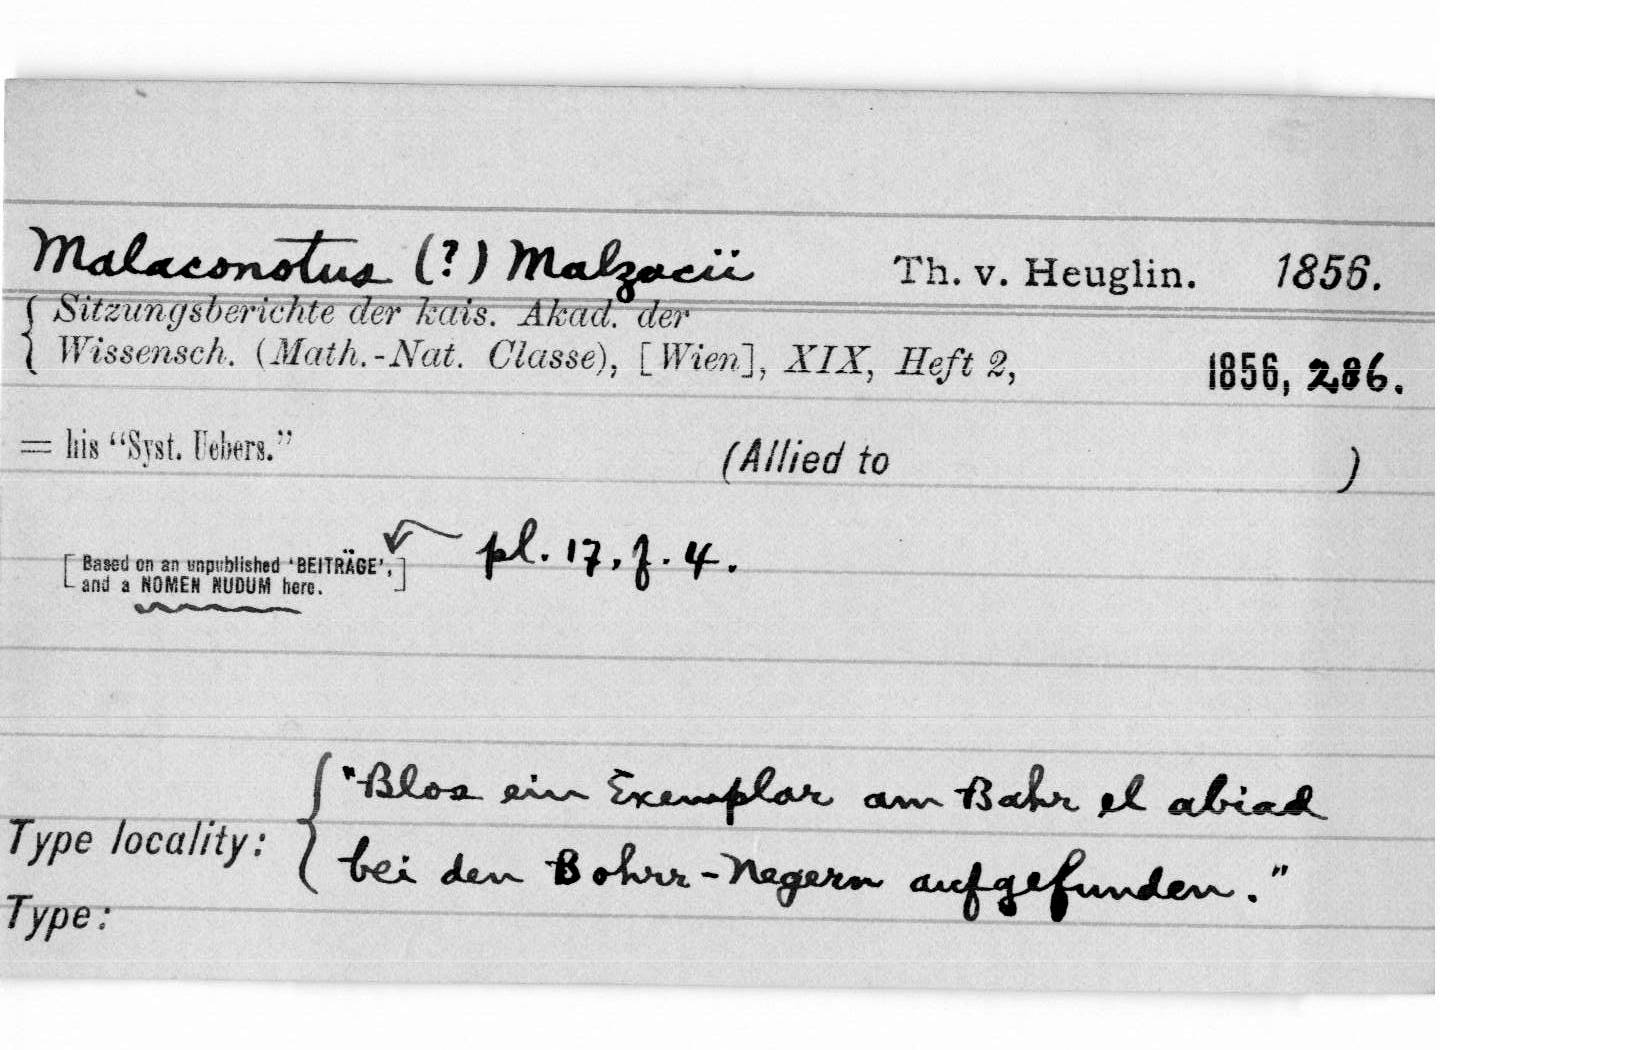 Malaconotus (?) Malzacii Th. v. Heuglin. 1856.
Sitzungsberichte der kais. Akad. der
Wissensch. (Math.-Nat. Classe), [Wien], XIX, Heft 2, 1856, 286.
= his "Syst. Uebers." (Allied to )
pl. 17, f. 4.
[Based on an unpublished 'BEITRÄGE',
and a NOMEN NUDUM here.]
"Blos ein Exemplar am Bahr el abiad
Type locality: bei den Bohrr-Negern aufgefunden."
Type: